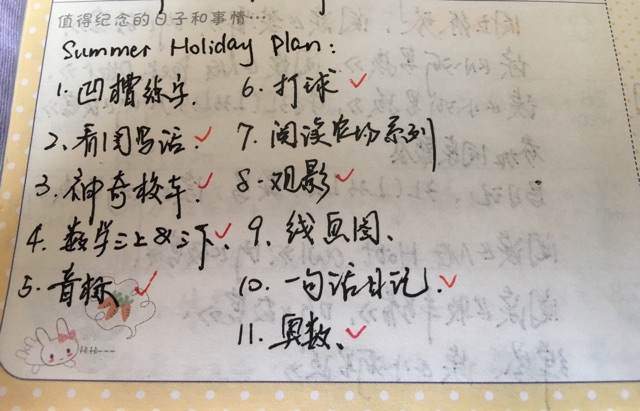 值得纪念的日子和事情…
Summer Holiday Plan:
1. 凹槽练字.
2. 看图写话.
3. 神奇校车.
4. 数学二上&二下.
5. 音标
6. 打球
7. 阅读农场系列
8. 观影
9. 线画图.
10. 一句话日记.
11. 奥数.